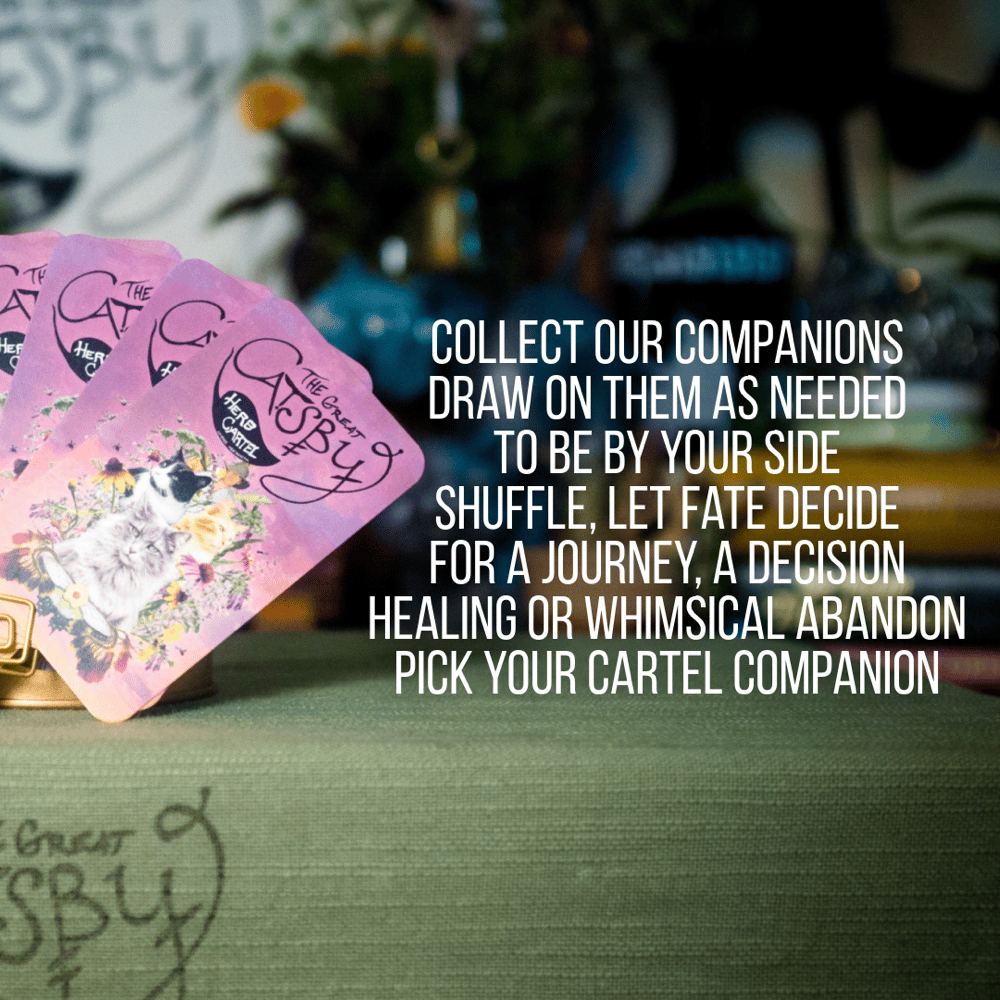 SBY
THE
CAT
HERB
THE
CAT
HER
THE GREAT
CATSBY
HERB
CARTEL
COLLECT OUR COMPANIONS
DRAW ON THEM AS NEEDED
TO BE BY YOUR SIDE
SHUFFLE, LET FATE DECIDE
FOR A JOURNEY, A DECISION
HEALING OR WHIMSICAL ABANDON
PICK YOUR CARTEL COMPANION
E GREAT
SBY